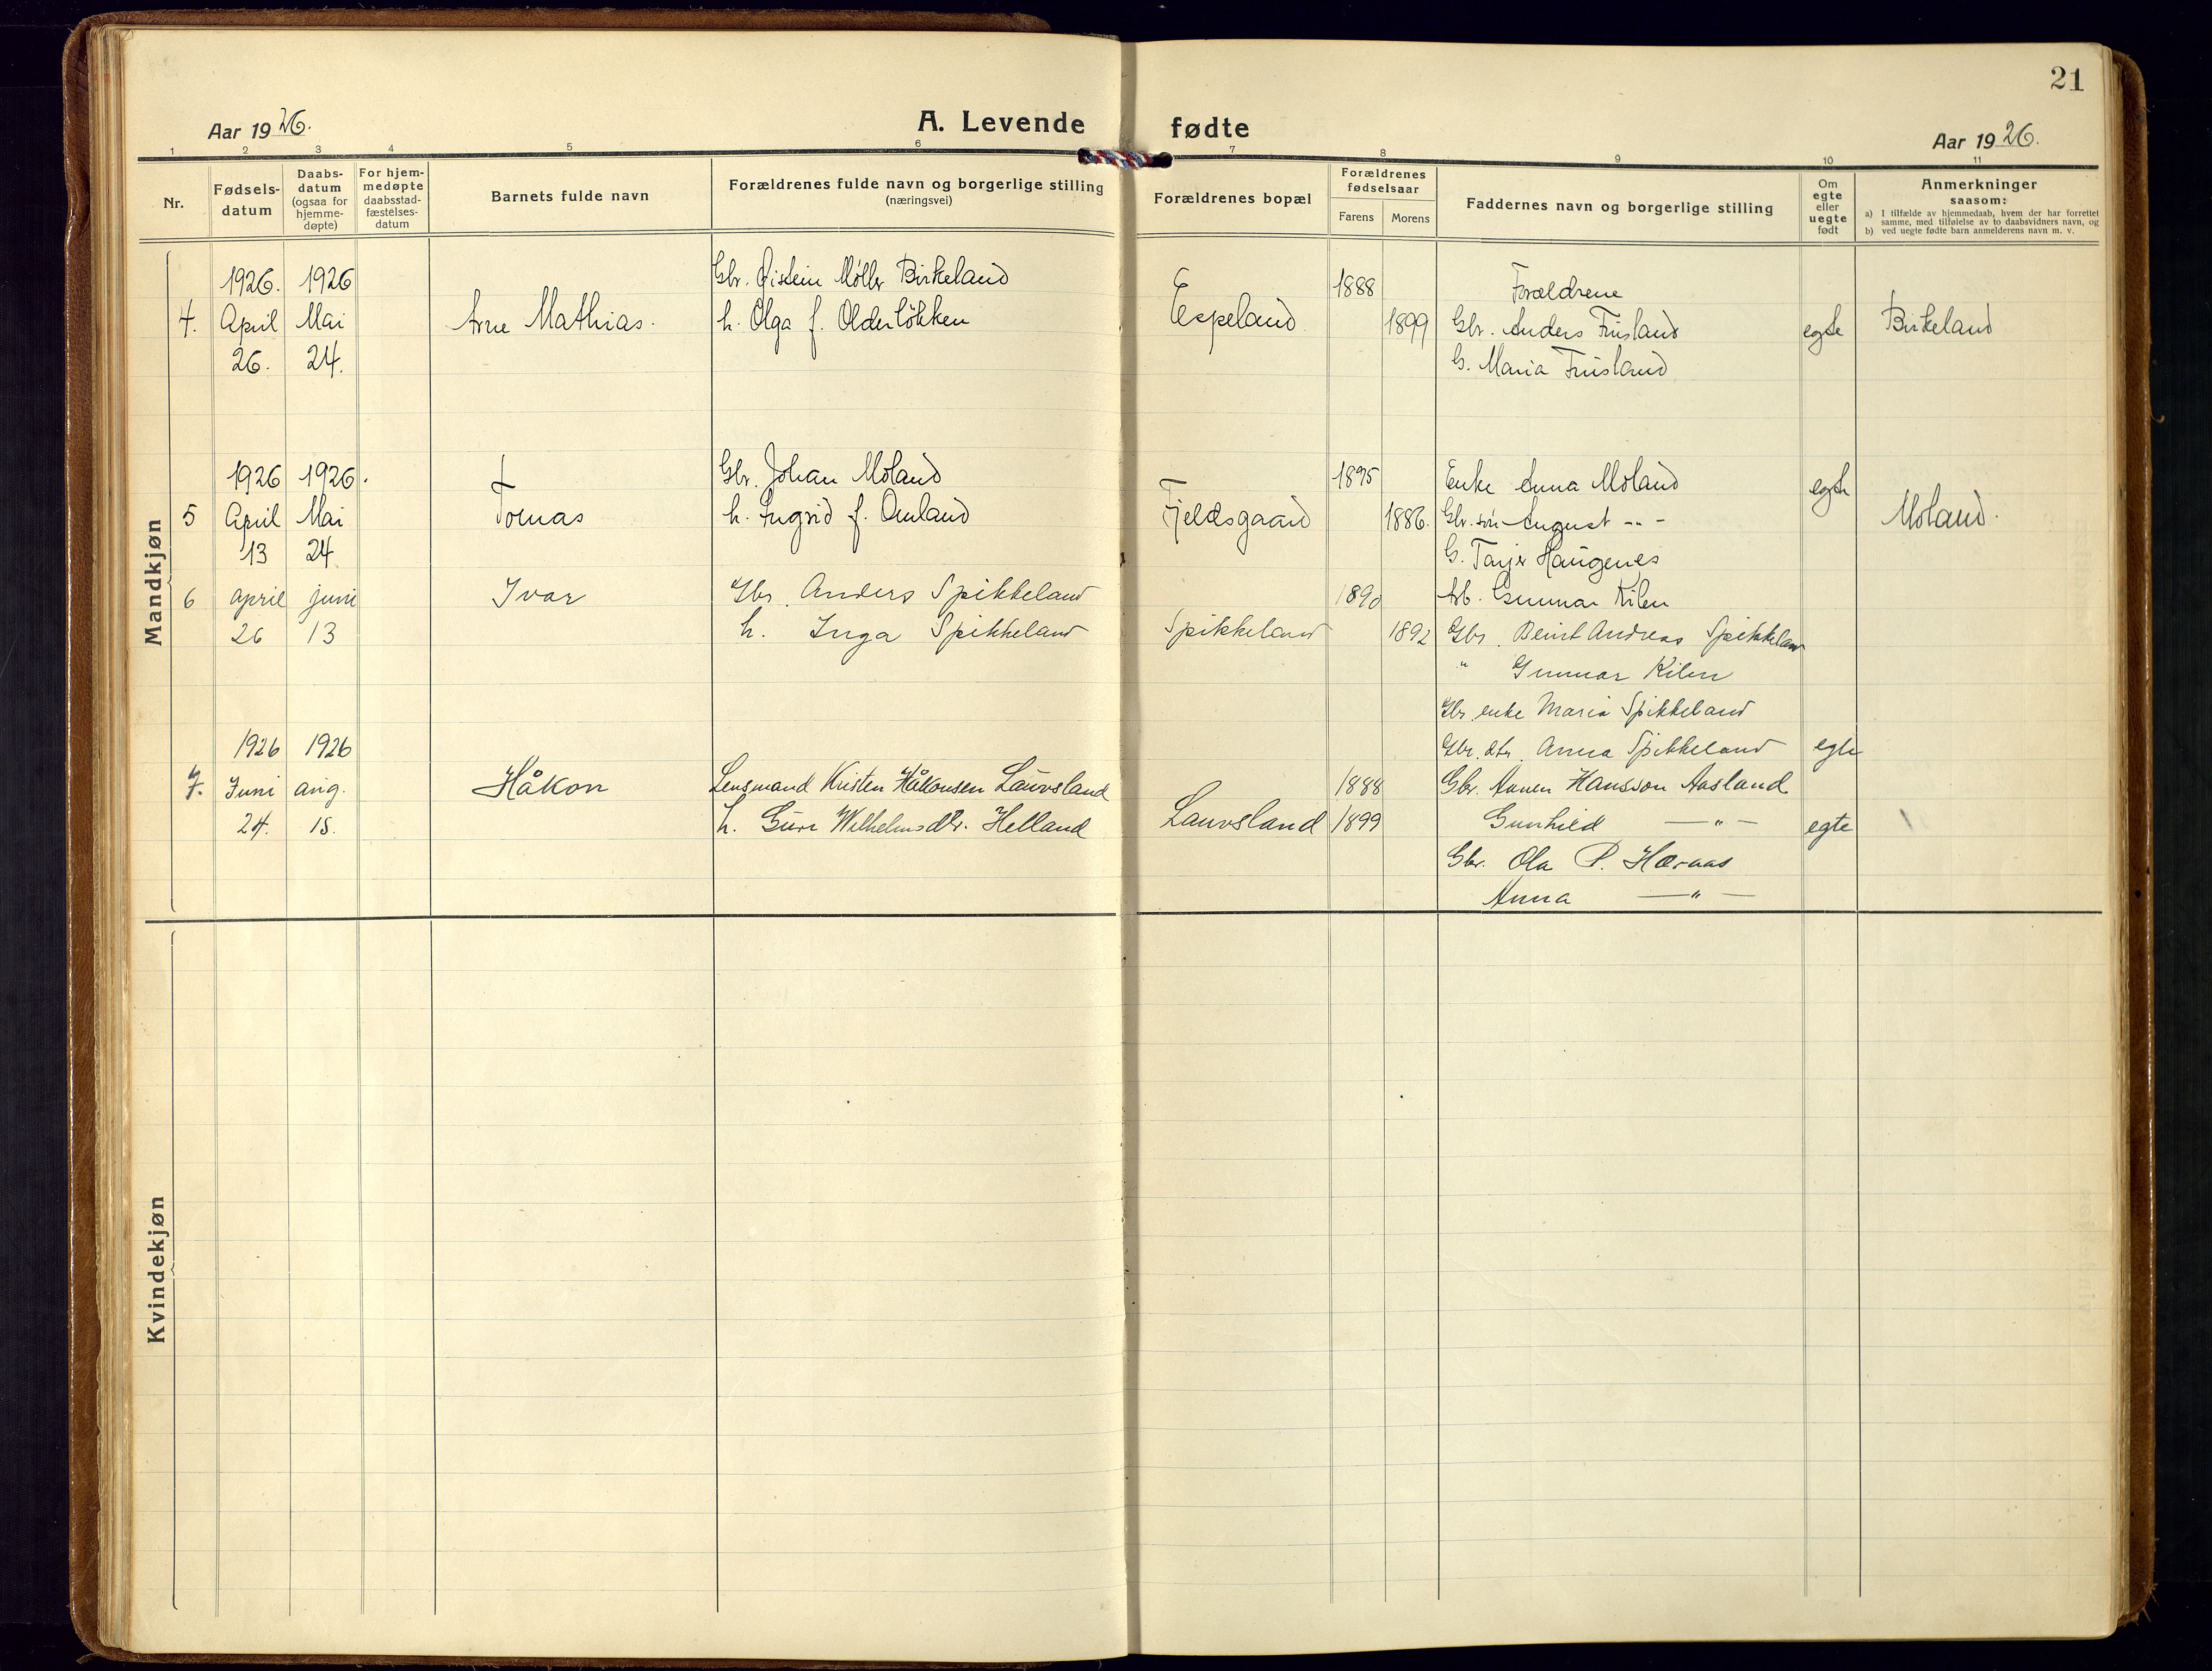 21
Aar 1926.
A. Levende fødte
Aar 1926.
1 2 3 4 5 6 7 8 9 10 11
Nr.
Fødsels-datum
Daabs-datum (ogsaa for hjemme-døpte)
For hjem-medøpte daabsstad-fæstelses-datum
Barnets fulde navn
Forældrenes fulde navn og borgerlige stilling (næringsvei)
Forældrenes bopæl
Forældrenes fødselsaar
Farens
Morens
Faddernes navn og borgerlige stilling
Om egte eller uegte født
Anmerkninger saasom:
a) I tilfælde av hjemmedaab, hvem der har forrettet samme, med tilføielse av to daabsvidners navn, og
b) ved uegte fødte barn anmelderens navn m. v.
Mandkjøn
1926. 1926 Gbr. Øistein Møller Birkeland 1888 Forældrene
4. April Mai Arne Mathias. h. Olga f. Olderløkken Espeland 1899 Gbr. Anders Frisland egte Birkeland
26. 24. G. Maria Frisland
1926 1926. Gbr. Johan Moland 1895 Enke Anna Moland egte
5 April Mai Tomas h. Ingrid f. Omland Fjeldsgaard 1886. Gbr. søn August -"- Moland.
13 24 G. Tarjer Haugenes
6 april juni Ivar Gbr. Anders Spikkeland 1890 Arb. Gunnar Kilen
26 13 h. Inga Spikkeland Spikkeland 1892 Gbr. Berint Andreas Spikkeland
" Gunnar Kilen
Gbr. enke Maria Spikkeland
1926 1926 Gbr. dtr. Anna Spikkeland egte
7. Juni aug. Håkon Lensmand Kristen Håkonsen Lauvsland 1888 Gbr. Hansson Aasland
24. 15. h. Guri Wilhelmsdtr. Helland Lauvsland 1899 Gunhild —"— egte
Gbr. Ola P. Høraas
Anna —"—
Kvindekjøn